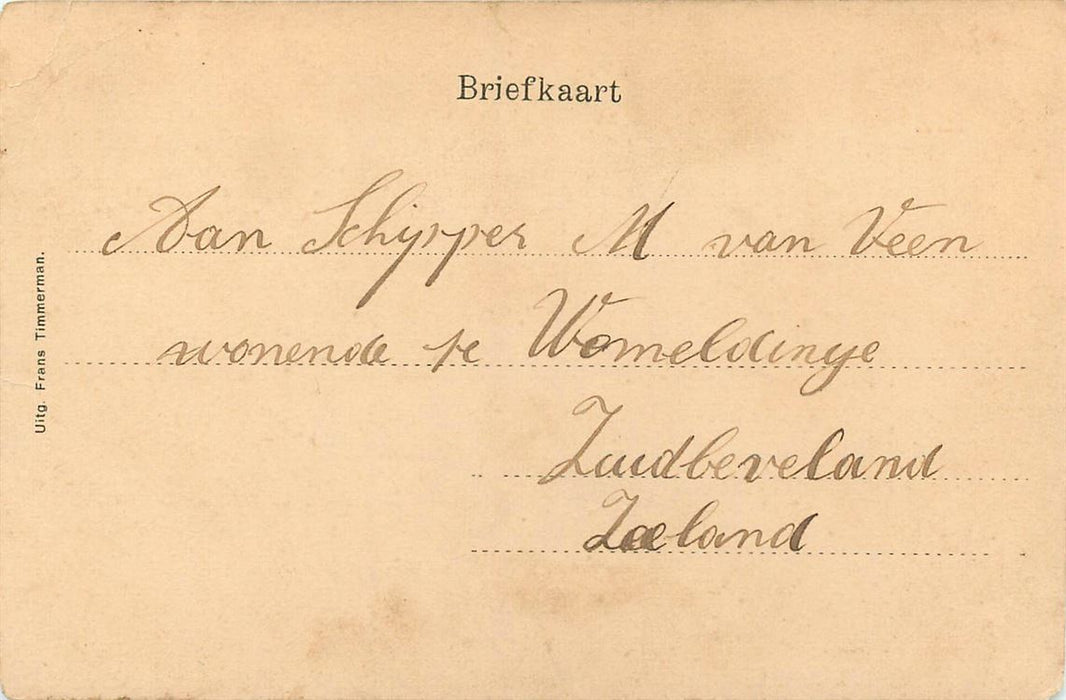 Briefkaart
Aan Schipper M van Veen
wonende te Wemeldinge
Zuidbeveland
Zeeland
Uitg. Frans Timmerman.